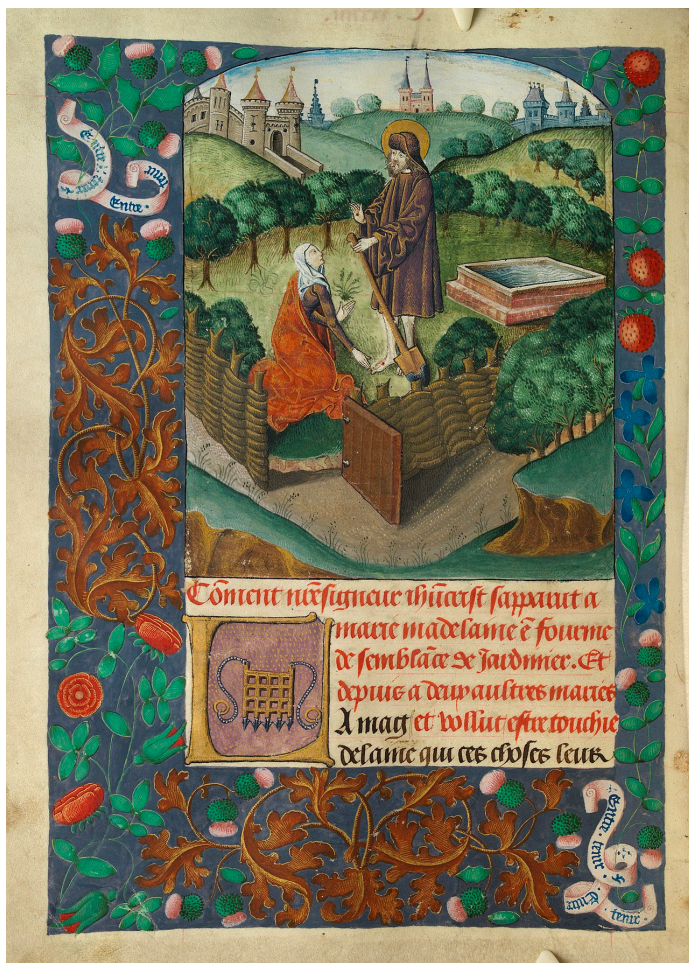 Entre tenir
Entre
Cōment nr̄esigneur ihūcrist sapparut a
marie madelaine ē fourme
de semblāce de Jardinier. Et
depuis a deux aultres maries
A mag et vollut estre touchie
delaine qui ces choses leur
Entre tenir
Entre
tenir